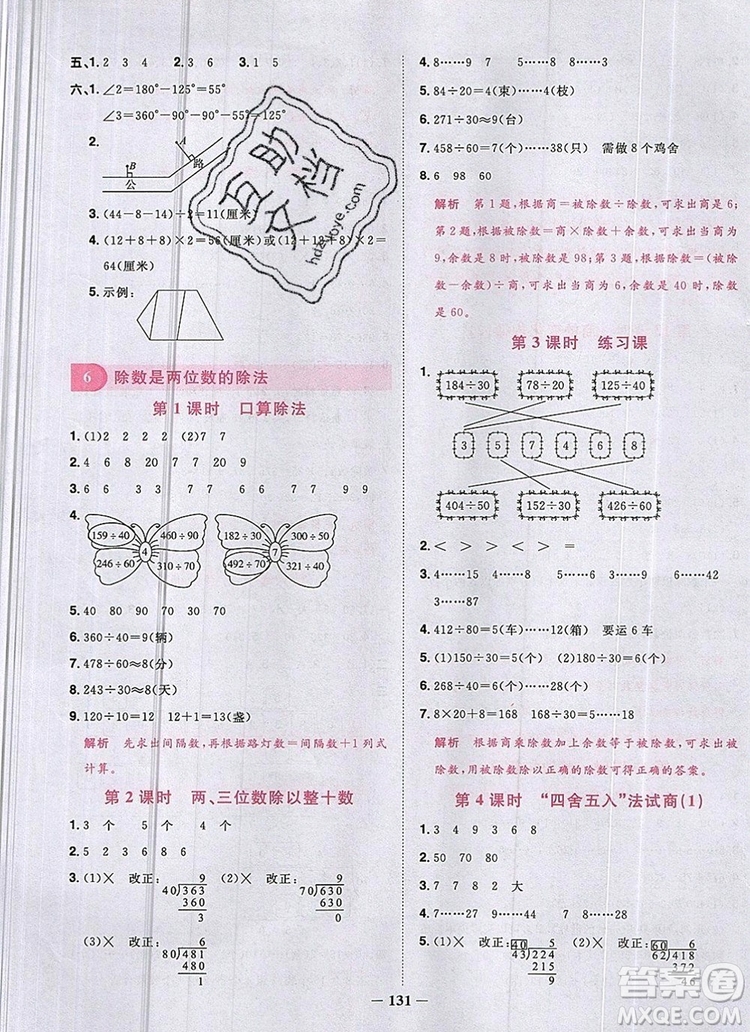 五、1. 2 3 4 2. 3 3. 1 5
六、1. ∠2=180°-125°=55°
∠3=360°-90°-90°-55°=125°
2.
B
A
路
公
3. (44-8-14)÷2=11(厘米)
4. (12+8)×2-8×2+(12+8)×2=
64(厘米)
5. 示例:
6 除数是两位数的除法
第 1 课时 口算除法
1. (1)2 2 2 2 (2)7 7
2. 4 8 20 7 7 20 9
3. 6 6 13 13 7 7 99 9
4.
159÷40 460÷90
4
246÷60 310÷70
182÷30 300÷50
7
492÷70 310÷50
5. 40 80 70 90
6. 360÷40=9(辆)
7. 478÷60≈8(分)
8. 243÷30≈8(天)
9. 120÷10=12 12+1=13(盏)
解析 先求出间隔数,再根据路灯数=间隔数+1 列式
计算。
第 2 课时 两、三位数除以整十数
1. 3 个 5 个 4 个 6 个
2. 5 2 3 6 8 6
3. (1)× 改正: 9 (2)× 改正: 9
40 363 70 630
360 630
3 0
(3)× 改正: 6
80 481
480
1
4. 8……9 5……8 8……8 6……8
5. 84÷20=4(束)……4(枝)
6. 271÷30≈9(台)
7. 458÷60=7(个)……38(只) 需做 8 个鸡舍
8. 6 98 60
解析 第 1 题,根据商=被除数÷除数,可求出商是 6;
第 2 题,根据被除数=商×除数+余数,可求出商为
9,余数是 8 时,被除数是 98;第 3 题,根据除数=(被
除数-余数)÷商,可求出余数是 40 时,除数
是 60。
第 3 课时 练习课
1.
184÷30 78÷20 125÷40
3 5 7 4 6 8
404÷50 152÷30 426÷60
2. < > > > < =
3. 4……15 4……4 5……32 6……42
3……87
4. 412÷80=5(车)……12(箱) 要运 6 车
5. (1)150÷30=5(个) (2)120÷20=6(个)
6. 268÷40=6(个)……28(个)
7. 8×20+8=168 168÷20=8……8
解析 根据商乘除数加上余数等于被除数,可求出被
除数,用被除数除以正确的除数,可求出正确的答案。
第 4 课时 “四舍五入”法试商(1)
1. 60 50 90 40
2. 50 70 80
3. 7 7 8 2 大
4. 7……27 7……9 8……30 9……44
5. (1)× 改正: 40 5 (2)× 改正: 60 6
43 224 62 418
215 372
9 46
131
互助文档
hdzuoye.com
答案圈
MXQE.COM